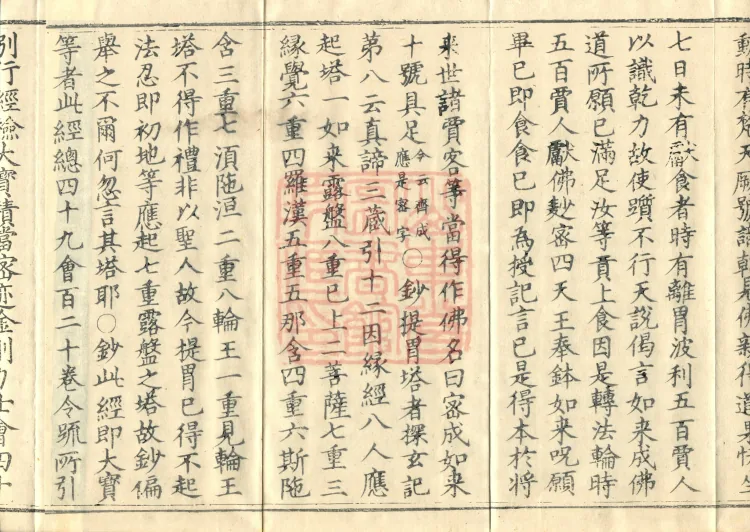 動時有梵天
七日未有獻食者時有離胃波利五百賈人
以識乾力故使躓不行天說偈言如来成佛
道所願已滿足汝等貢上食因是轉法輪時
五百賈人獻佛麨蜜四天王奉鉢如来呪願
畢已即食食已即為授記言已是得本於將
来世諸賈客等當得作佛名曰密成如来
十號具足今云齊成應是密字〇鈔提胃塔者探玄記
第八云真諦三蔵引十二因縁經八人應
起塔一如来露盤八重已上二菩薩七重三
縁覺六重四羅漢五重五那含四重六斯陁
含三重七須陁洹二重八輪王一重見輪王
塔不得作禮非以聖人故今提胃已得不起
法忍即初地等應起七重露盤之塔故鈔偏
舉之不爾何忽言其塔耶〇鈔此經即大寶
等者此經總四十九會百二十卷今䟽所引
別行經檢大寶積當密迹金剛力士會四十